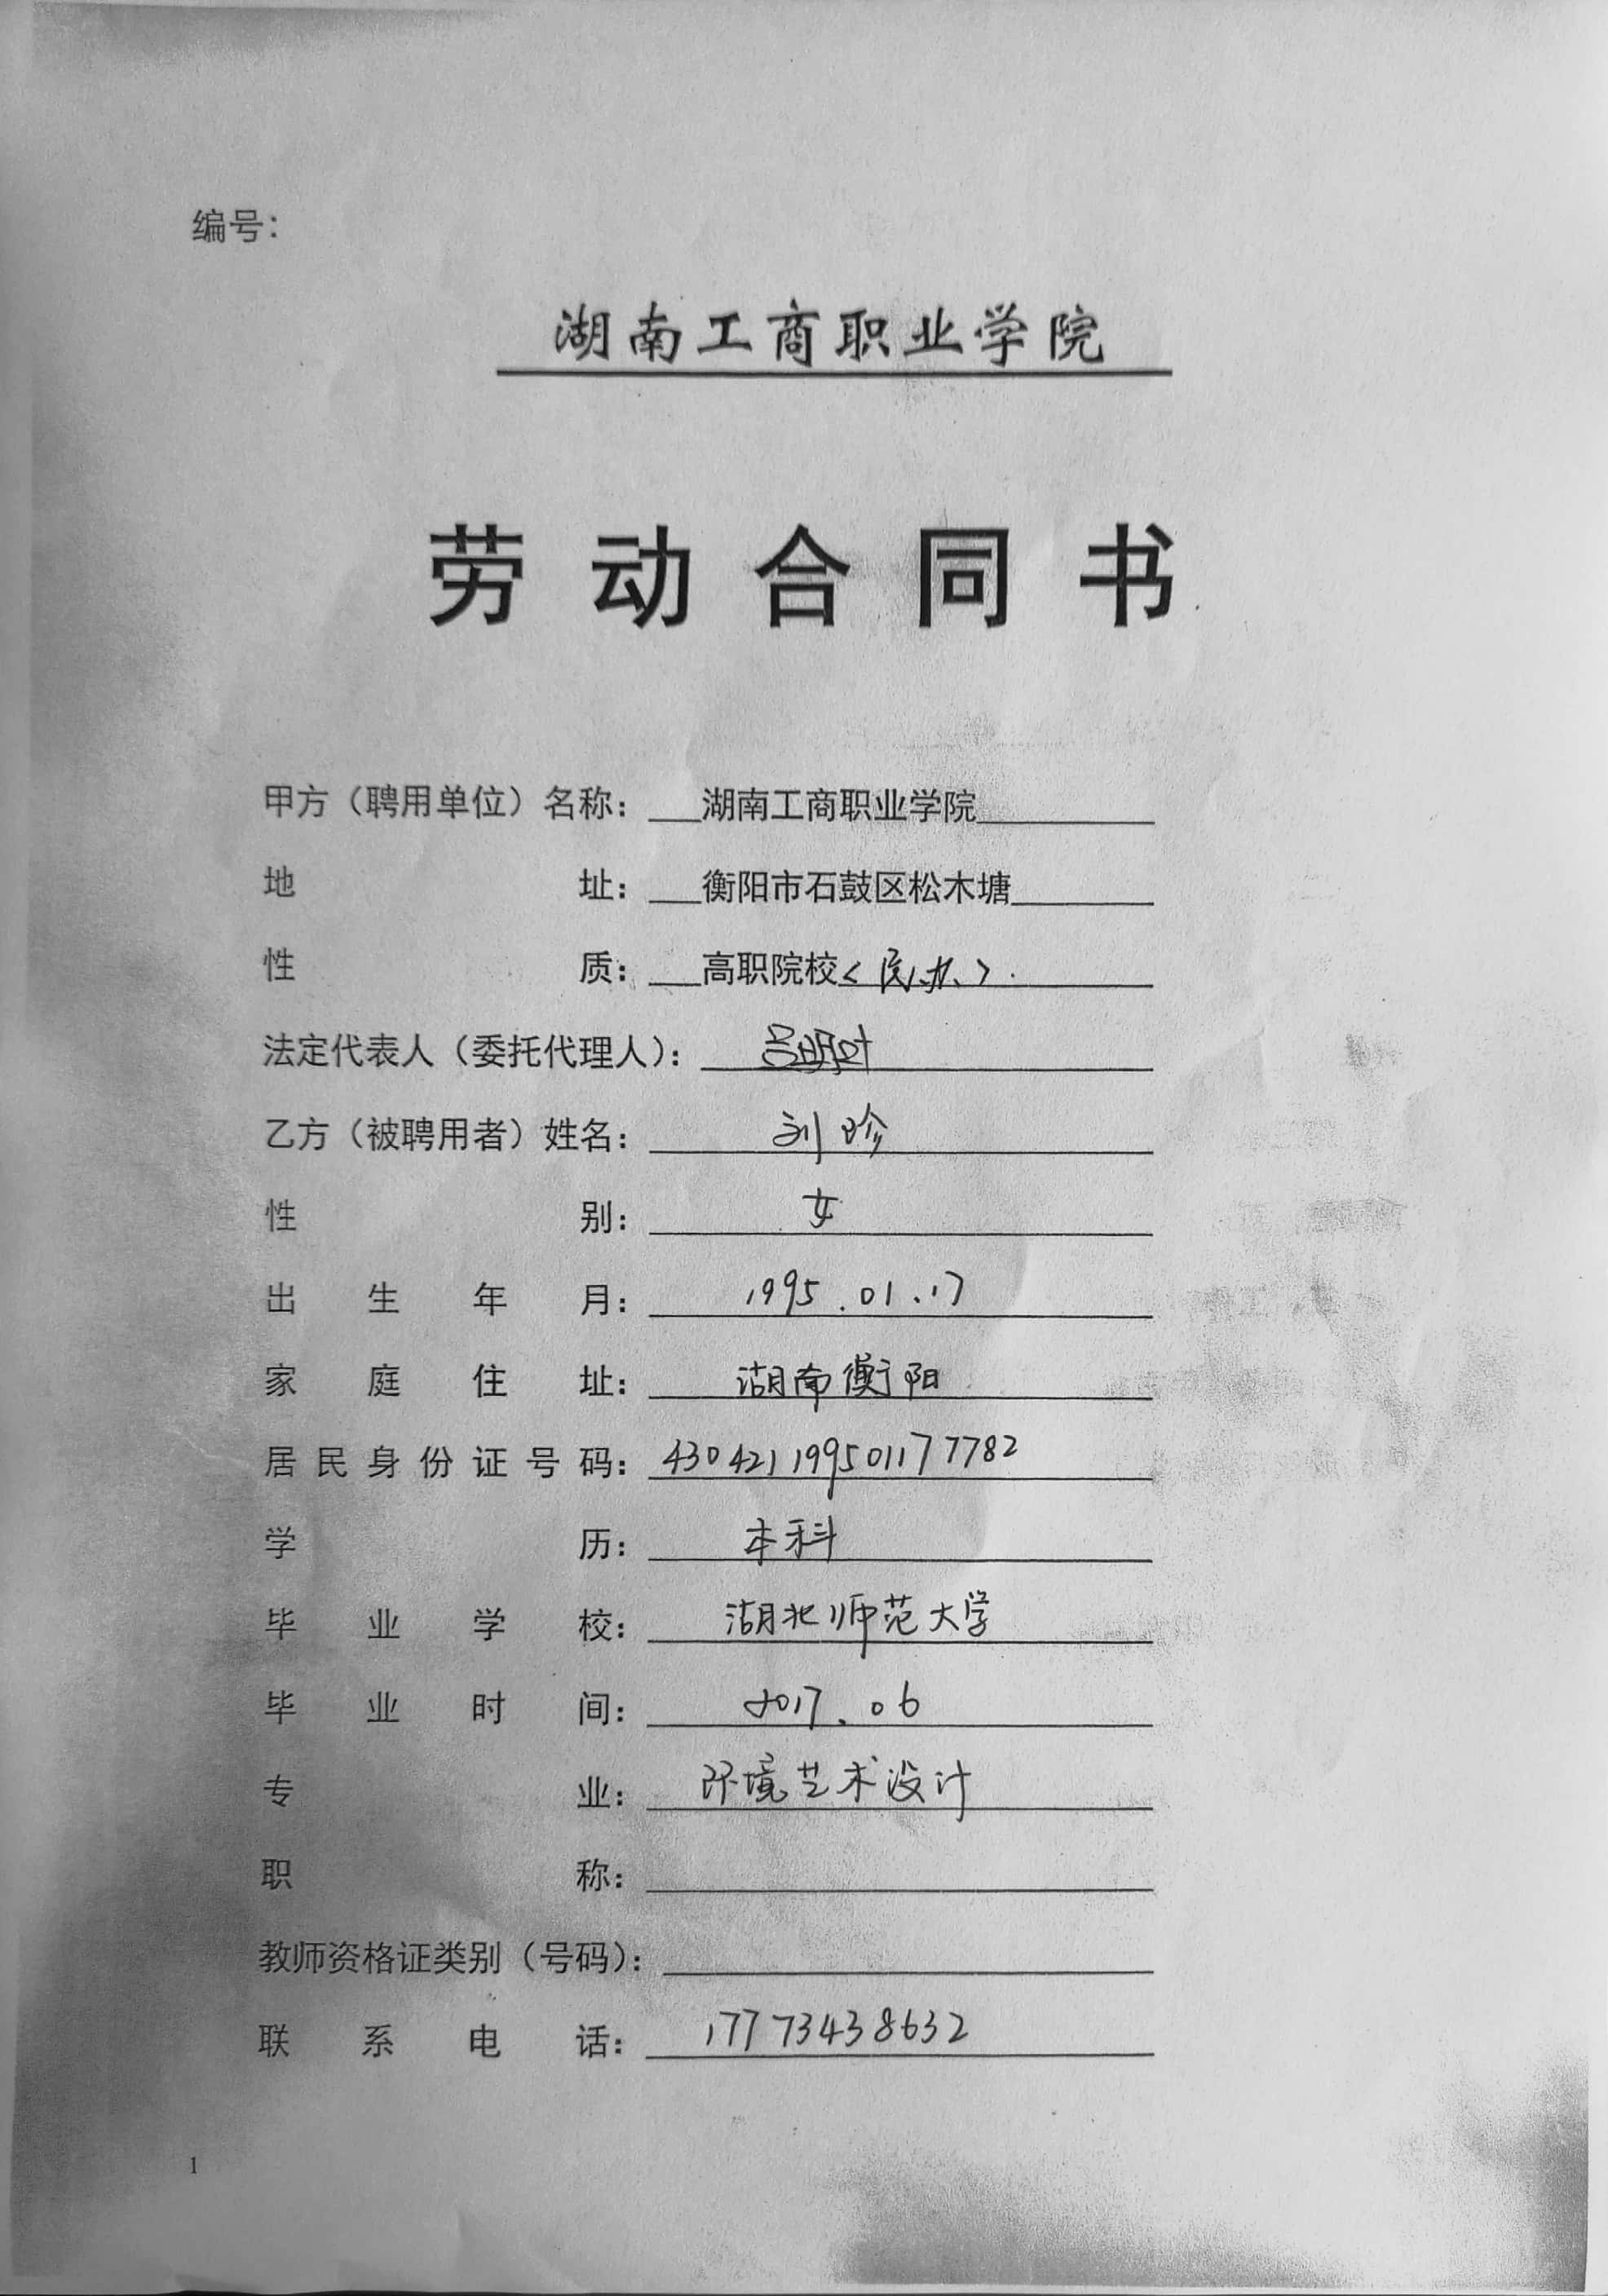 编号：
湖南工商职业学院
劳动合同书
甲方（聘用单位）名称： 湖南工商职业学院
地址： 衡阳市石鼓区松木塘
性质： 高职院校＜民办＞.
法定代表人（委托代理人）： 吕明叶
乙方（被聘用者）姓名： 刘珍
性别： 女
出生年月： 1995.01.17
家庭住址： 湖南衡阳
居民身份证号码： 430421199501177782
学历： 本科
毕业学校： 湖北师范大学
毕业时间： 2017.06
专业： 环境艺术设计
职称：
教师资格证类别（号码）：
联系电话： 17773438632
1